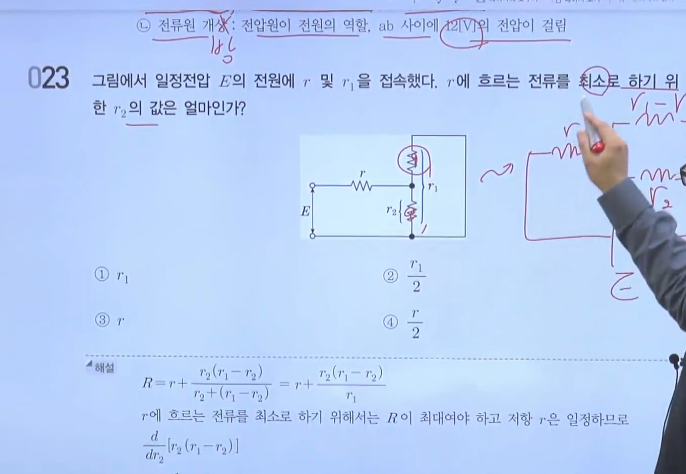 ㉡ 전류원 개방 : 전압원이 전원의 역할, ab 사이에 12[V]의 전압이 걸림
개방
023 그림에서 일정전압 E의 전원에 r 및 r₁을 접속했다. r에 흐르는 전류를 최소로 하기 위
한 r₂의 값은 얼마인가?
r
r₁
E
r₂
r
r₂
E
① r₁
② r₁/2
③ r
④ r/2
해설
R = r + r₂(r₁ − r₂) / r₂ + (r₁ − r₂) = r + r₂(r₁ − r₂) / r₁
r에 흐르는 전류를 최소로 하기 위해서는 R이 최대여야 하고 저항 r은 일정하므로
d/dr₂ [r₂(r₁ − r₂)]